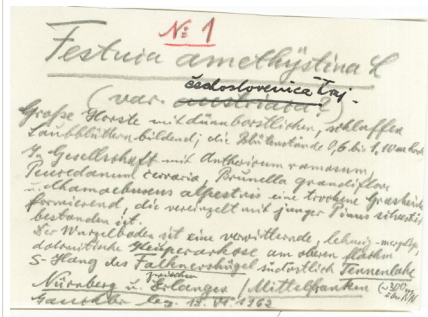 № 1
Festuca amethystina L
čechoslovenica Traj.
(var. austriaca?)
Große Horste mit dünnborstlichen, schlaffen
Laubblättern bildend; die Blütenstände 0,6 bis 1,10 m hoch
In Gesellschaft mit Anthericum ramosum
Peucedanum cervaria, Brunella grandiflora
u. Chamaebuxus alpestris eine trockene Grasheide
formierend, die vereinzelt mit junger Pinus silvestris
bestanden ist.
Der Wurzelboden ist eine verwitternde, lehmig-mergelige,
dolomitische Keuperarkose am oberen flachen
S-Hang des Falknershügel südöstlich Tennenlohe
zwischen
Nürnberg u. Erlangen / Mittelfranken (~300 m
über NN)
leg. 13. VI 1962